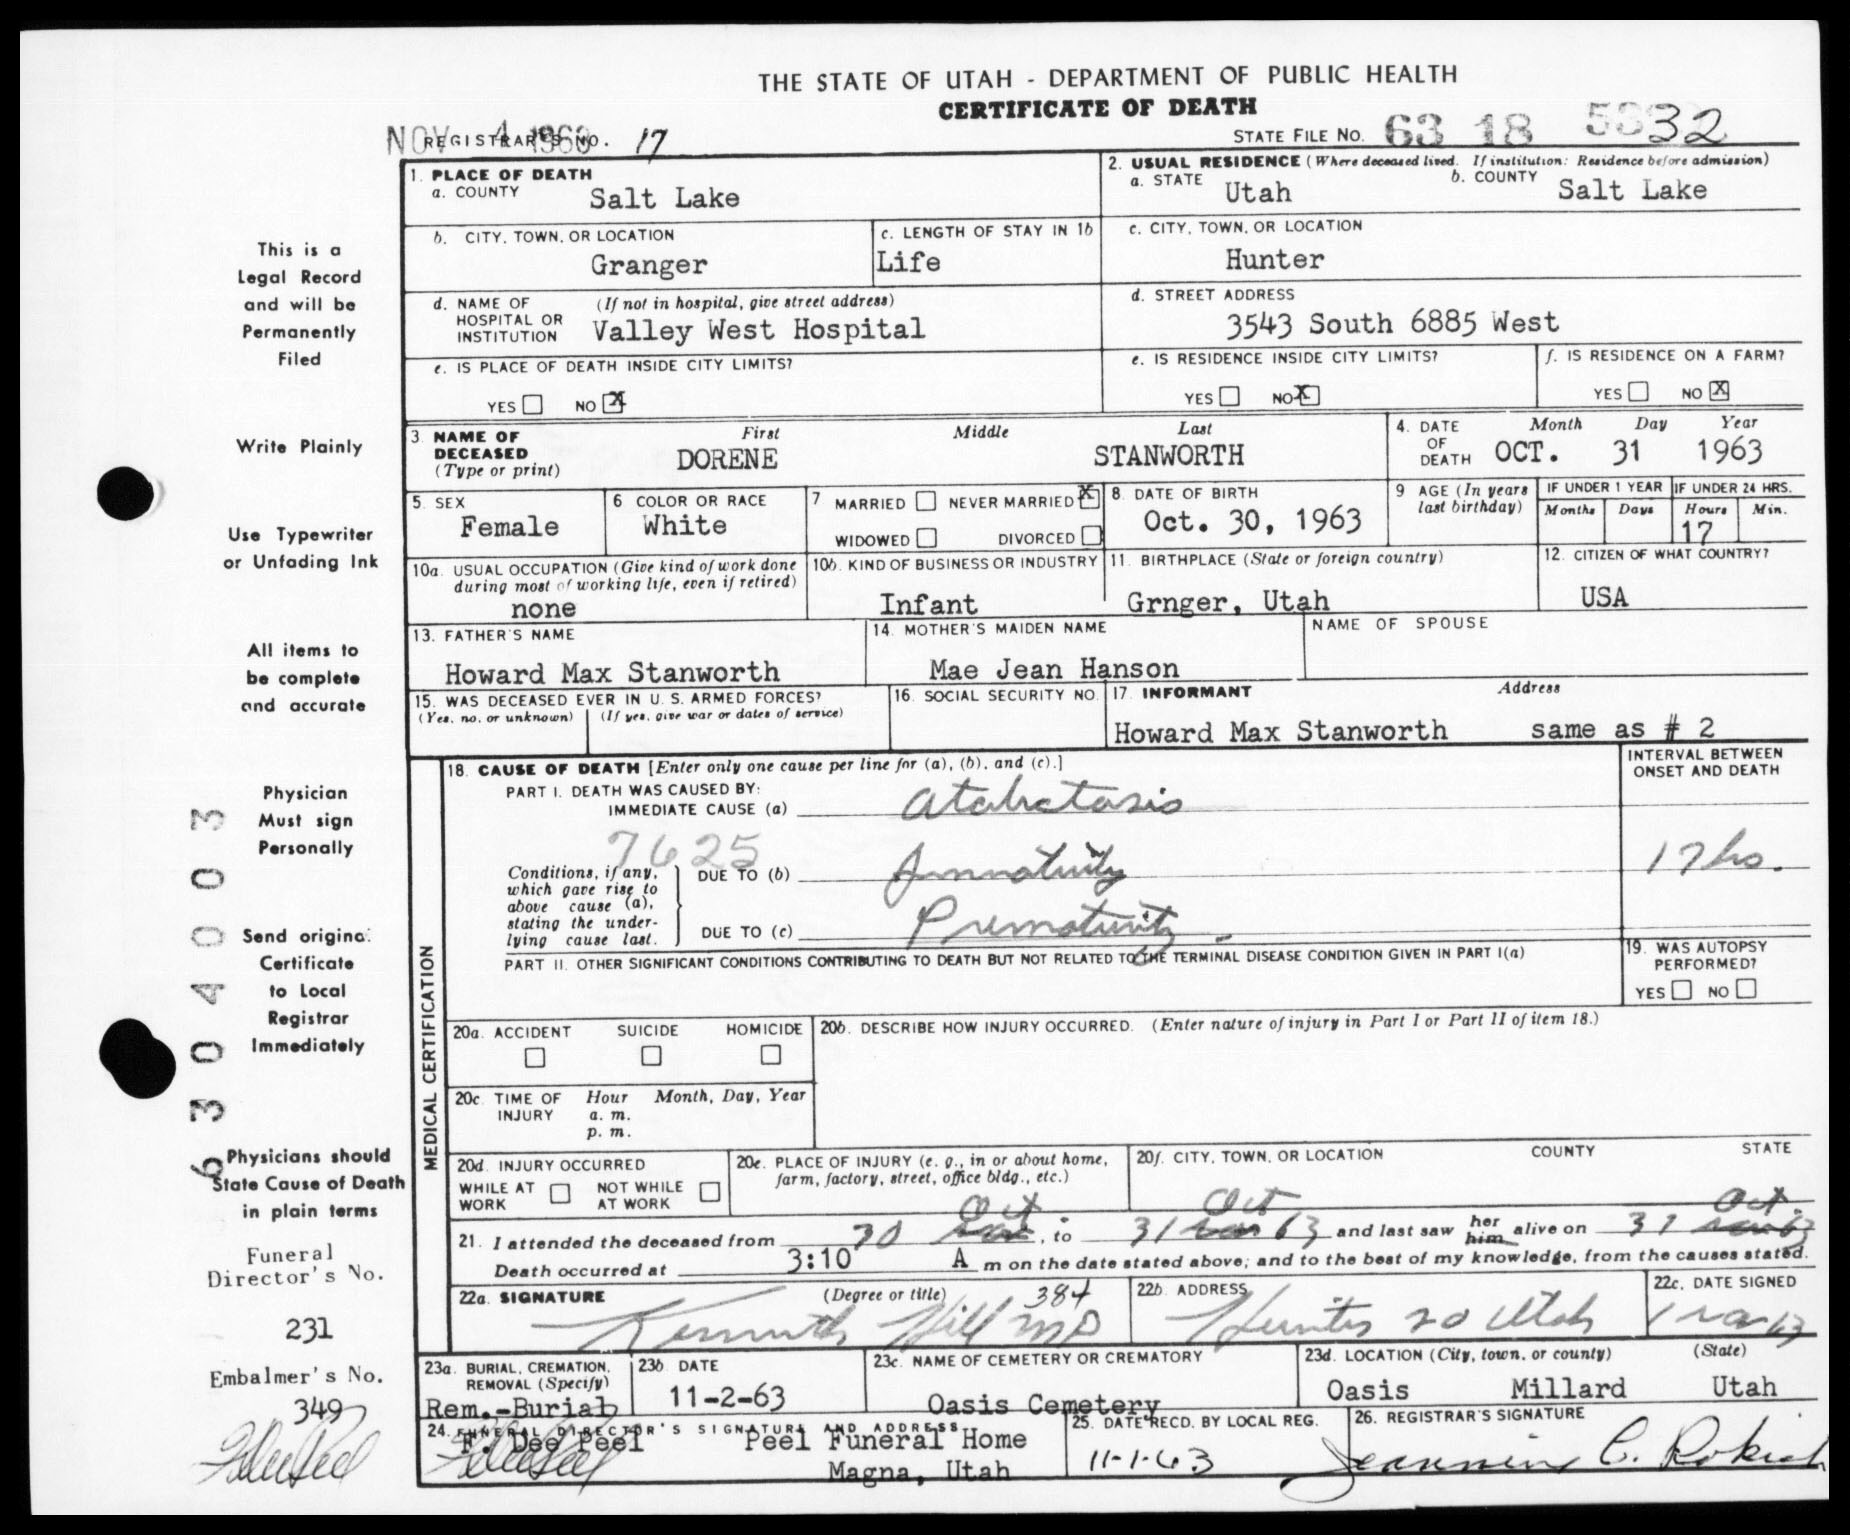 THE STATE OF UTAH - DEPARTMENT OF PUBLIC HEALTH
CERTIFICATE OF DEATH
NOV 4 1963
REGISTRAR'S NO. 17
STATE FILE NO. 63 18 32
1. PLACE OF DEATH
a. COUNTY Salt Lake
2. USUAL RESIDENCE (Where deceased lived. If institution: Residence before admission)
a. STATE Utah b. COUNTY Salt Lake
b. CITY, TOWN, OR LOCATION Granger
c. LENGTH OF STAY IN 1b Life
c. CITY, TOWN, OR LOCATION Hunter
d. NAME OF HOSPITAL OR INSTITUTION (If not in hospital, give street address) Valley West Hospital
d. STREET ADDRESS 3543 South 6885 West
e. IS PLACE OF DEATH INSIDE CITY LIMITS?
YES NO X
e. IS RESIDENCE INSIDE CITY LIMITS?
YES NO X
f. IS RESIDENCE ON A FARM?
YES NO X
3. NAME OF DECEASED (Type or print) First Middle Last
DORENE STANWORTH
4. DATE OF DEATH Month Day Year
OCT. 31 1963
5. SEX Female
6 COLOR OR RACE White
7 MARRIED NEVER MARRIED X
WIDOWED DIVORCED
8. DATE OF BIRTH Oct. 30, 1963
9 AGE (In years last birthday)
IF UNDER 1 YEAR Months Days
IF UNDER 24 HRS. Hours Min.
17
10a. USUAL OCCUPATION (Give kind of work done during most of working life, even if retired)
none
10b. KIND OF BUSINESS OR INDUSTRY
Infant
11. BIRTHPLACE (State or foreign country)
Grnger, Utah
12. CITIZEN OF WHAT COUNTRY?
USA
13. FATHER'S NAME
Howard Max Stanworth
14. MOTHER'S MAIDEN NAME
Mae Jean Hanson
NAME OF SPOUSE
15. WAS DECEASED EVER IN U. S. ARMED FORCES?
(Yes, no, or unknown) (If yes, give war or dates of service)
16. SOCIAL SECURITY NO.
17. INFORMANT Address
Howard Max Stanworth same as # 2
MEDICAL CERTIFICATION
18. CAUSE OF DEATH [Enter only one cause per line for (a), (b), and (c).]
INTERVAL BETWEEN ONSET AND DEATH
PART I. DEATH WAS CAUSED BY:
IMMEDIATE CAUSE (a) Atelectasis
7625
Conditions, if any, which gave rise to above cause (a), stating the underlying cause last.
DUE TO (b) Immaturity
17 hrs.
DUE TO (c) Prematurity
PART II. OTHER SIGNIFICANT CONDITIONS CONTRIBUTING TO DEATH BUT NOT RELATED TO THE TERMINAL DISEASE CONDITION GIVEN IN PART I(a)
19. WAS AUTOPSY PERFORMED?
YES NO
20a. ACCIDENT SUICIDE HOMICIDE
20b. DESCRIBE HOW INJURY OCCURRED. (Enter nature of injury in Part I or Part II of item 18.)
20c. TIME OF INJURY Hour Month, Day, Year
a. m.
p. m.
20d. INJURY OCCURRED
WHILE AT WORK NOT WHILE AT WORK
20e. PLACE OF INJURY (e. g., in or about home, farm, factory, street, office bldg., etc.)
20f. CITY, TOWN, OR LOCATION COUNTY STATE
21. I attended the deceased from 30 Oct, to 31 Oct 63 and last saw her him alive on 31 Oct. 63
Death occurred at 3:10 A m on the date stated above; and to the best of my knowledge, from the causes stated.
22a. SIGNATURE (Degree or title) 384
Kenneth Hill MD
22b. ADDRESS
Hunter Utah
22c. DATE SIGNED
1 Nov 63
23a. BURIAL, CREMATION, REMOVAL (Specify)
Rem.-Burial
23b. DATE
11-2-63
23c. NAME OF CEMETERY OR CREMATORY
Oasis Cemetery
23d. LOCATION (City, town, or county) (State)
Oasis Millard Utah
24. FUNERAL DIRECTOR'S SIGNATURE AND ADDRESS
F. Dee Peel Peel Funeral Home
Magna, Utah
25. DATE RECD. BY LOCAL REG.
11-1-63
26. REGISTRAR'S SIGNATURE
This is a
Legal Record
and will be
Permanently
Filed
Write Plainly
Use Typewriter
or Unfading Ink
All items to
be complete
and accurate
Physician
Must sign
Personally
Send original
Certificate
to Local
Registrar
Immediately
Physicians should
State Cause of Death
in plain terms
Funeral
Director's No.
231
Embalmer's No.
349
6304003